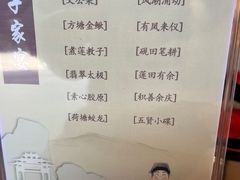 [文公菜]
[风潮涌动]
[方塘金鳅]
[有凤来仪]
[煮莲教子]
[砚田笔耕]
[翡翠太极]
[莲田有余]
[素心胶原]
[积善余庆]
[荷塘蛟龙]
[五贤小碟]
子家宴